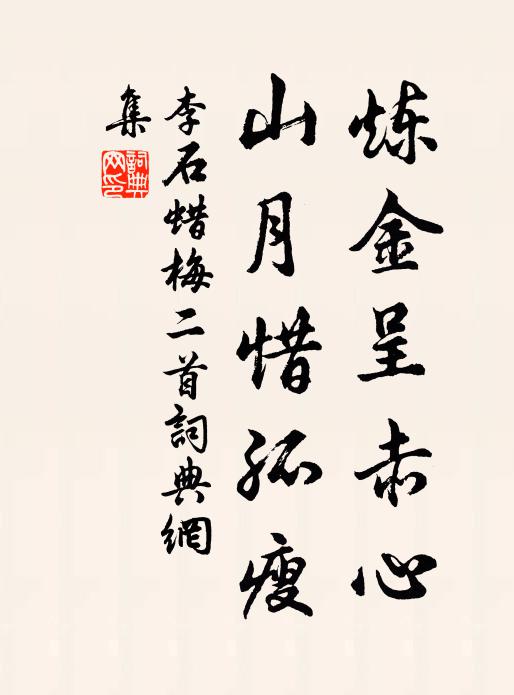 炼金呈赤心
山月惜孤瘦
李石蜡梅二首詞典網
集
詞典网